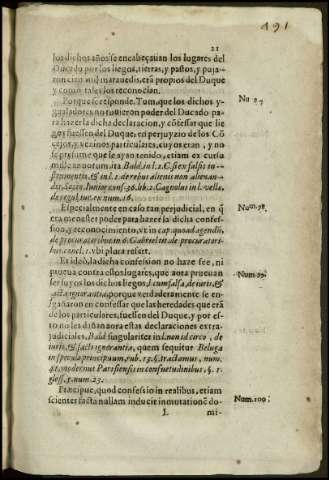 191
21
los dichos años se encabeçauan los lugares del
Ducado por los liegos, tierras, y pastos, y paja-
ron cien mil marauedis, erã propios del Duque
y como tales los reconocian.
Porque se responde. Tum, que los dichos y-
gualadores no tuuieron poder del Ducado pa-
ra hazer la dicha declaracion, y cõfessar que lie
gos fuessen del Duque, en perjuyzio de los Cõ
cejos, y vezinos particulares, cuyos eran, y no
se presume que le ayan tenido, etiam ex cursu
mille annorum ita
reg. iur. ex num. 16.
Num. 98.
Especialmente en caso tan perjudicial, en q̃
era menester poder para hazer la dicha confes-
sion, y reconocimiento, vt in cap. quoad agendũ,
de procuratoribus in 6. Gabriel tit. de procuratori-
bus concl. 1. vbi plura refert.
Num. 99.
Et ideò, la dicha confession no haze fee, ni
prueua contra ellos lugares, que aora prueuan
ser suyos los dichos liegos, l. cum falsa, de iuris, &
facti ignorantia, porque verdaderamente se en-
gañaron en confessar que las heredades que erã
de los particulares, fuessen del Duque, y por es-
so no les dañan aora estas declaraciones extra-
judiciales, Bald. singulariter in l. non id circo, de
iuris, & facti ignorantia, quem sequitur Beluga
in specula principum, rub. 13. §. tractemus, num.
Parisiensis in consuetudinibus, §. 1.
gloss. 5. num. 23.
Num. 100.
Præcipue, quod confessio in realibus, etiam
scienter facta nullam inducit inmutationẽ do-
L mi-